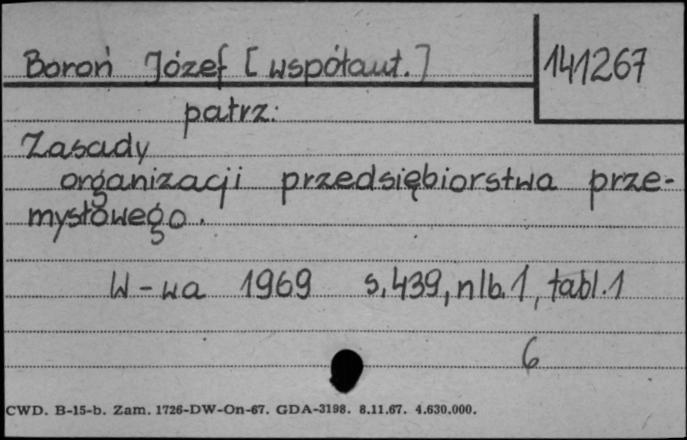 Boroń Józef [współaut.] 141267
patrz:
Zasady
organizacji przedsiębiorstwa prze-
mysłowego.
W-wa 1969 s.439, nlb.1, tabl.1
6
CWD. B-15-b. Zam. 1726-DW-On-67. GDA-3198. 8.11.67. 4.630.000.